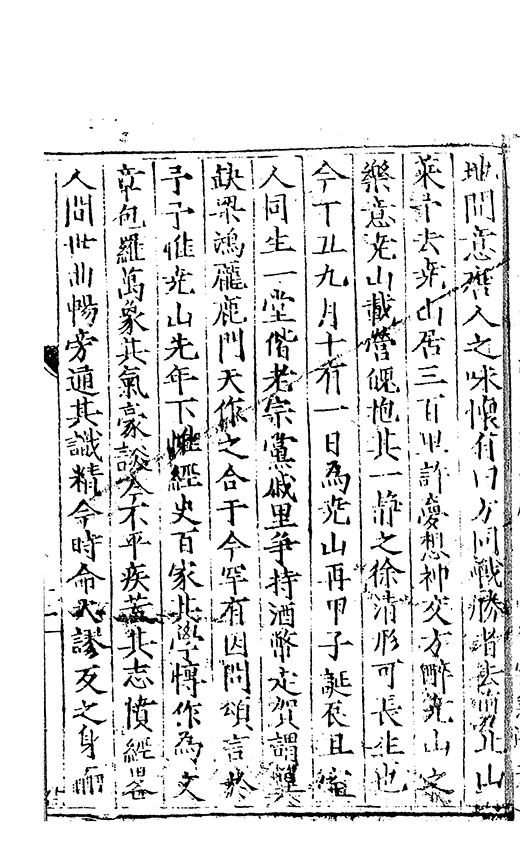 地間意澹人之味懷有曰方同戰勝者去前北山
萊予去堯山居三百里許夢想神交方醉堯山家
樂意堯山載營魄抱其一靜之徐清形可長生也
今丁丑九月十有一日為堯山再甲子誕辰且
人同生一堂偕老宗黨戚里爭持酒幣走賀謂與
缺梁鴻龐鹿門天作之合于今罕有因問頌言於
予予惟堯山先年下惟經史百家其學博作為文
章包羅萬象其氣豪談若不平疾蓋其志憤經畧
人間世曲暢旁通其識精今時命大謬反之身而